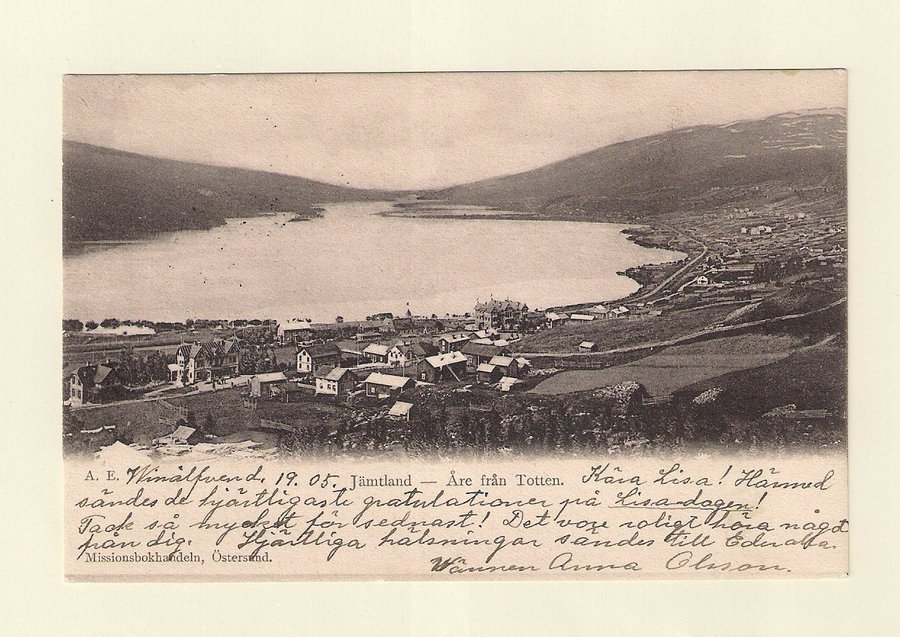 A. E. 19.05. Jämtland — Åre från Totten. Kära Lisa! Härmed
sändes de hjärtligaste gratulationer på Lisa-dagen!
Tack så mycket för sednast! Det vore roligt höra något
från dig. Hjärtliga hälsningar sändes till Eder alla.
Missionsbokhandeln, Östersund.
Vännen Anna Olsson.